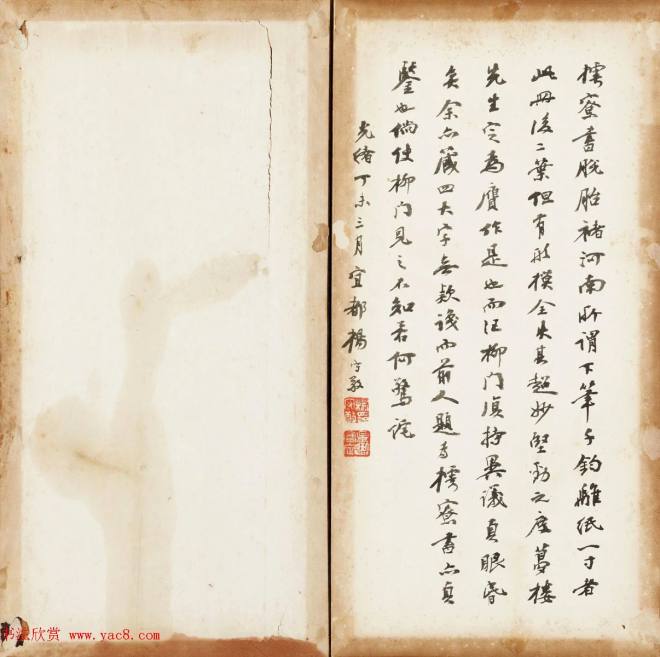 樗寮書脫胎褚河南所謂下筆千鈞離紙一寸者
此冊後二葉但有形模全失其超妙堅勁之處葛樓
先生定為贋作是也而汪柳門頗持異議真眼昏
矣余亦藏四大字無欵識而前人題為樗寮書亦真
鑒也倘使柳門見之不知若何驚詫
光緒丁未三月宜都楊守敬
书法欣赏 www.yac8.com